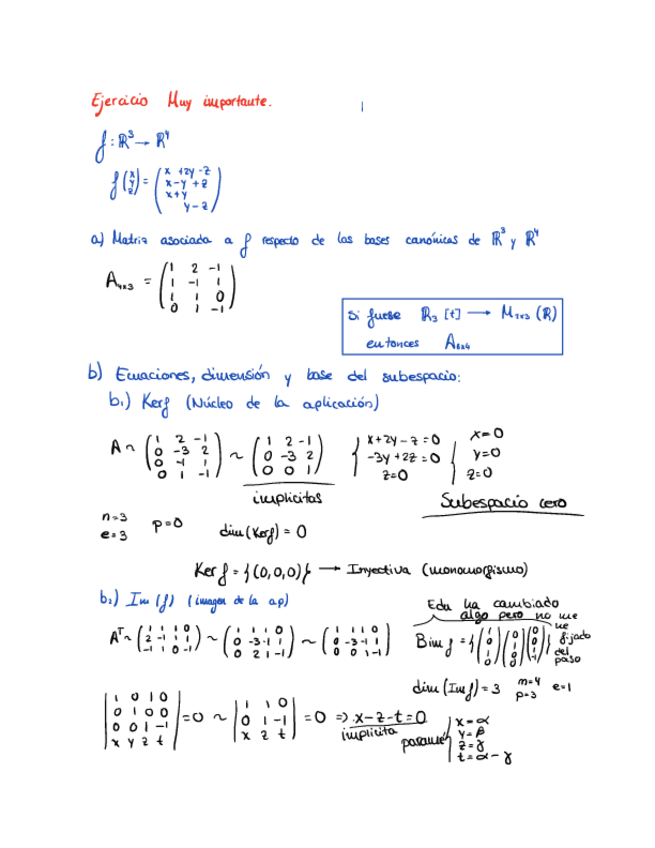 Ejercicio Muy importante.
f: ℝ³ → ℝ⁴
f (x y z) = (x +2y -z
x -y +z
x+y
y-z)
a) Matriz asociada a f respecto de las bases canónicas de ℝ³ y ℝ⁴
A₄ₓ₃ = (1 2 -1
1 -1 1
1 1 0
0 1 -1)
Si fuese ℝ₃ [t] → M₂ₓ₃ (ℝ)
entonces A₆ₓ₄
b) Ecuaciones, dimensión y base del subespacio:
b₁) Kerf (Núcleo de la aplicación)
A ~ (1 2 -1
0 -3 2
0 -1 1
0 1 -1) ~ (1 2 -1
0 -3 2
0 0 1)
{ x+2y-z=0
-3y+2z=0
z=0
{ x=0
y=0
z=0
implícitas
Subespacio cero
n=3
e=3
p=0
dim (Kerf) = 0
Ker f = {(0,0,0)} → Inyectiva (monomorfismo)
b₂) Im (f) (imagen de la ap)
Edu ha cambiado
algo pero no me
he
fijado
del
paso
Aᵀ ~ (1 1 1 0
2 -1 1 1
-1 1 0 -1) ~ (1 1 1 0
0 -3 -1 1
0 2 1 -1) ~ (1 1 1 0
0 -3 -1 1
0 0 1 -1)
dim (Im f) = 3
m=4
p=3
e=1
|1 0 1 0
0 1 0 0
0 0 1 -1
x y z t| =0 ~ |1 1 0
0 1 -1
x z t| = 0 => x-z-t=0
implícita
{ x=α
y=β
z=γ
t=α-γ